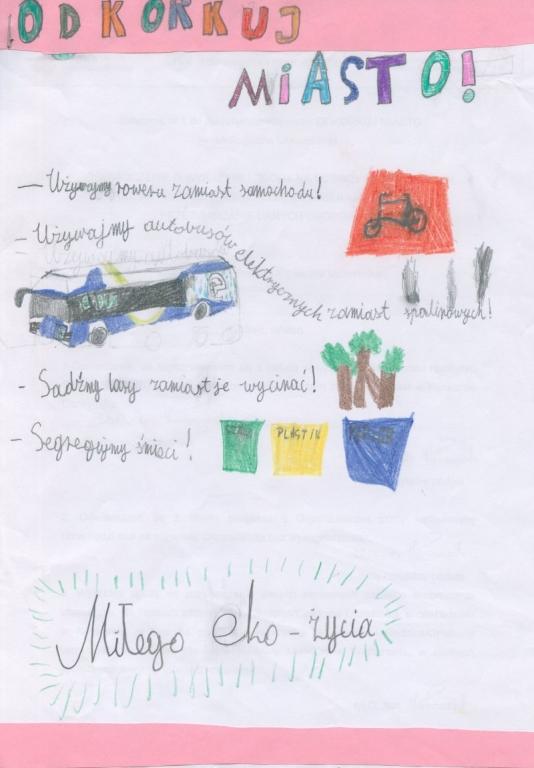 ODKORKUJ
MIASTO!
— Używajmy roweru zamiast samochodu!
- Używajmy autobusów elektrycznych zamiast spalinowych!
e BUS
- Sadźmy lasy zamiast je wycinać!
- Segregujmy śmieci!
PLASTIK
Miłego eko-życia